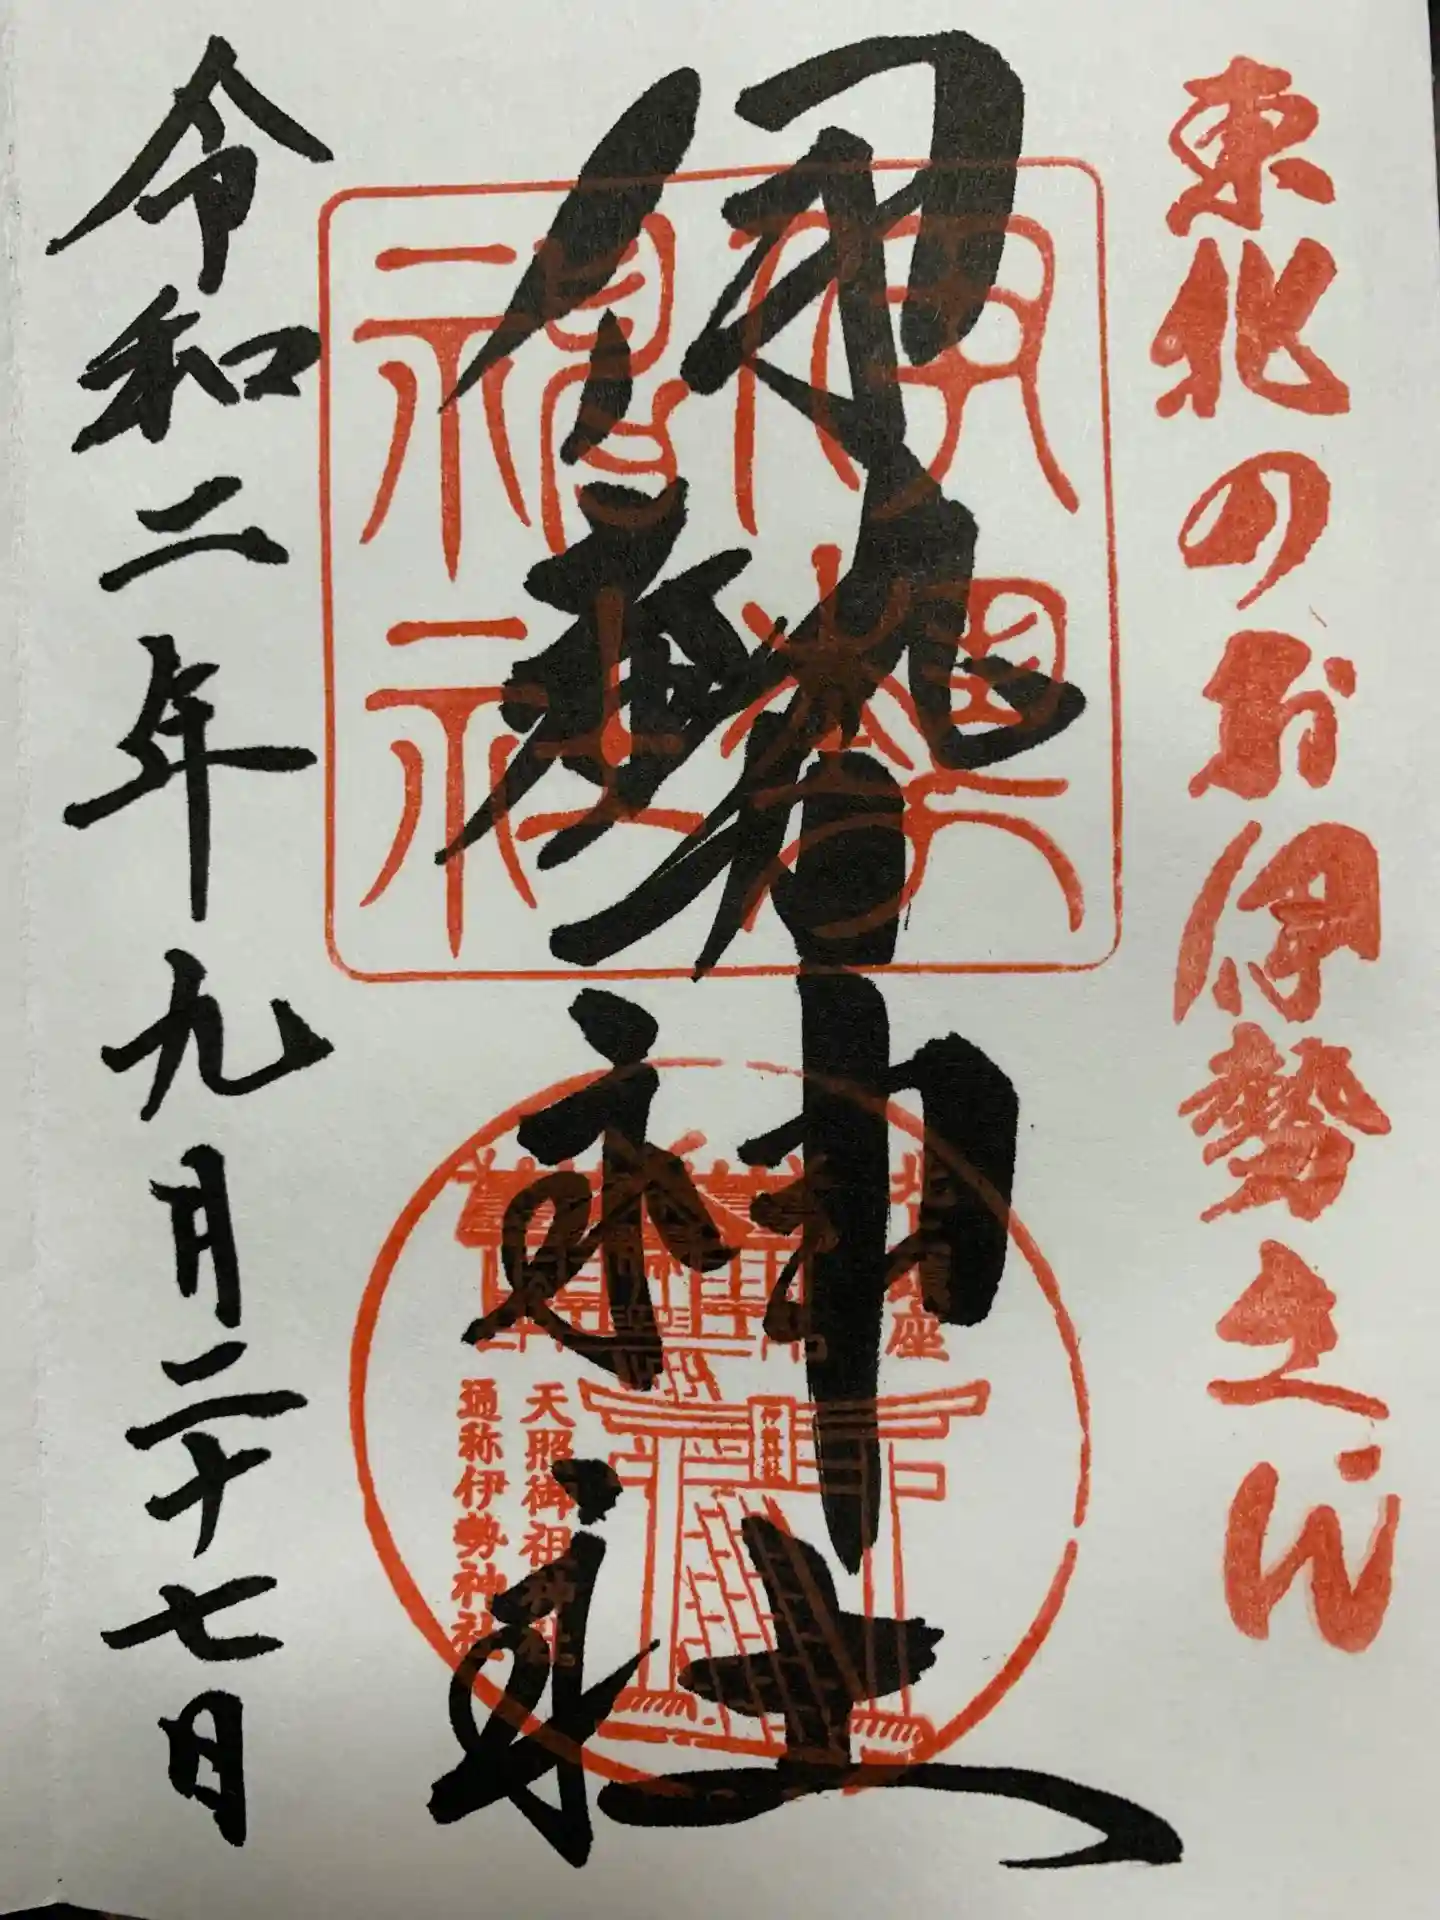 東北のお伊勢さん
伊勢神社
伊勢
神社
座
伊勢神社
天照御祖神社
通称伊勢神社
令和二年九月二十七日